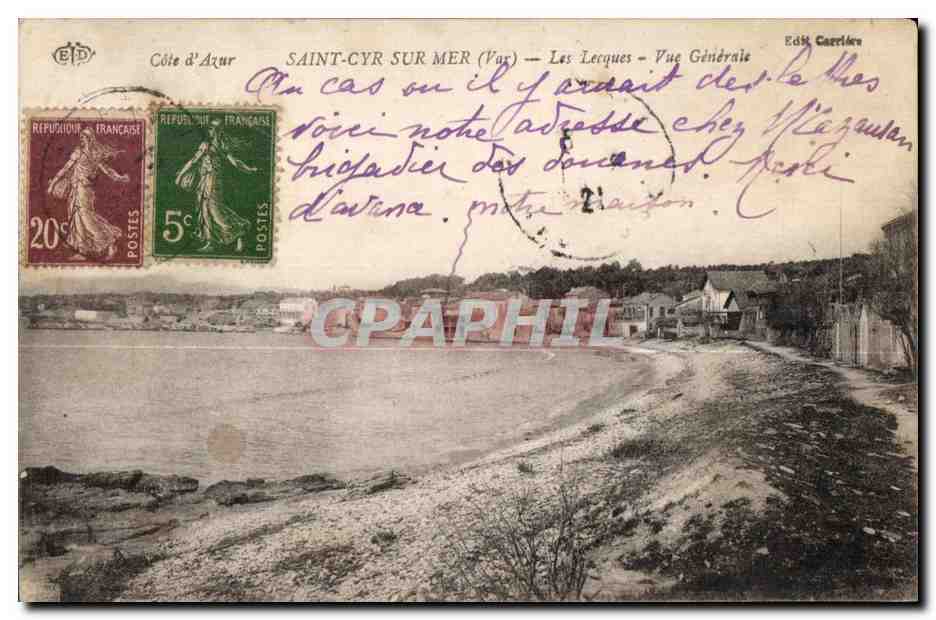 ED
Côte d'Azur SAINT-CYR SUR MER (Var) — Les Lecques - Vue Générale
Edit Carrière
Au cas ou il y aurait des lettres
voici notre adresse chez
brigadier des douanes.
notre maison.
REPUBLIQUE FRANÇAISE
20c
POSTES
REPUBLIQUE FRANÇAISE
5c
POSTES
CPAPHIL